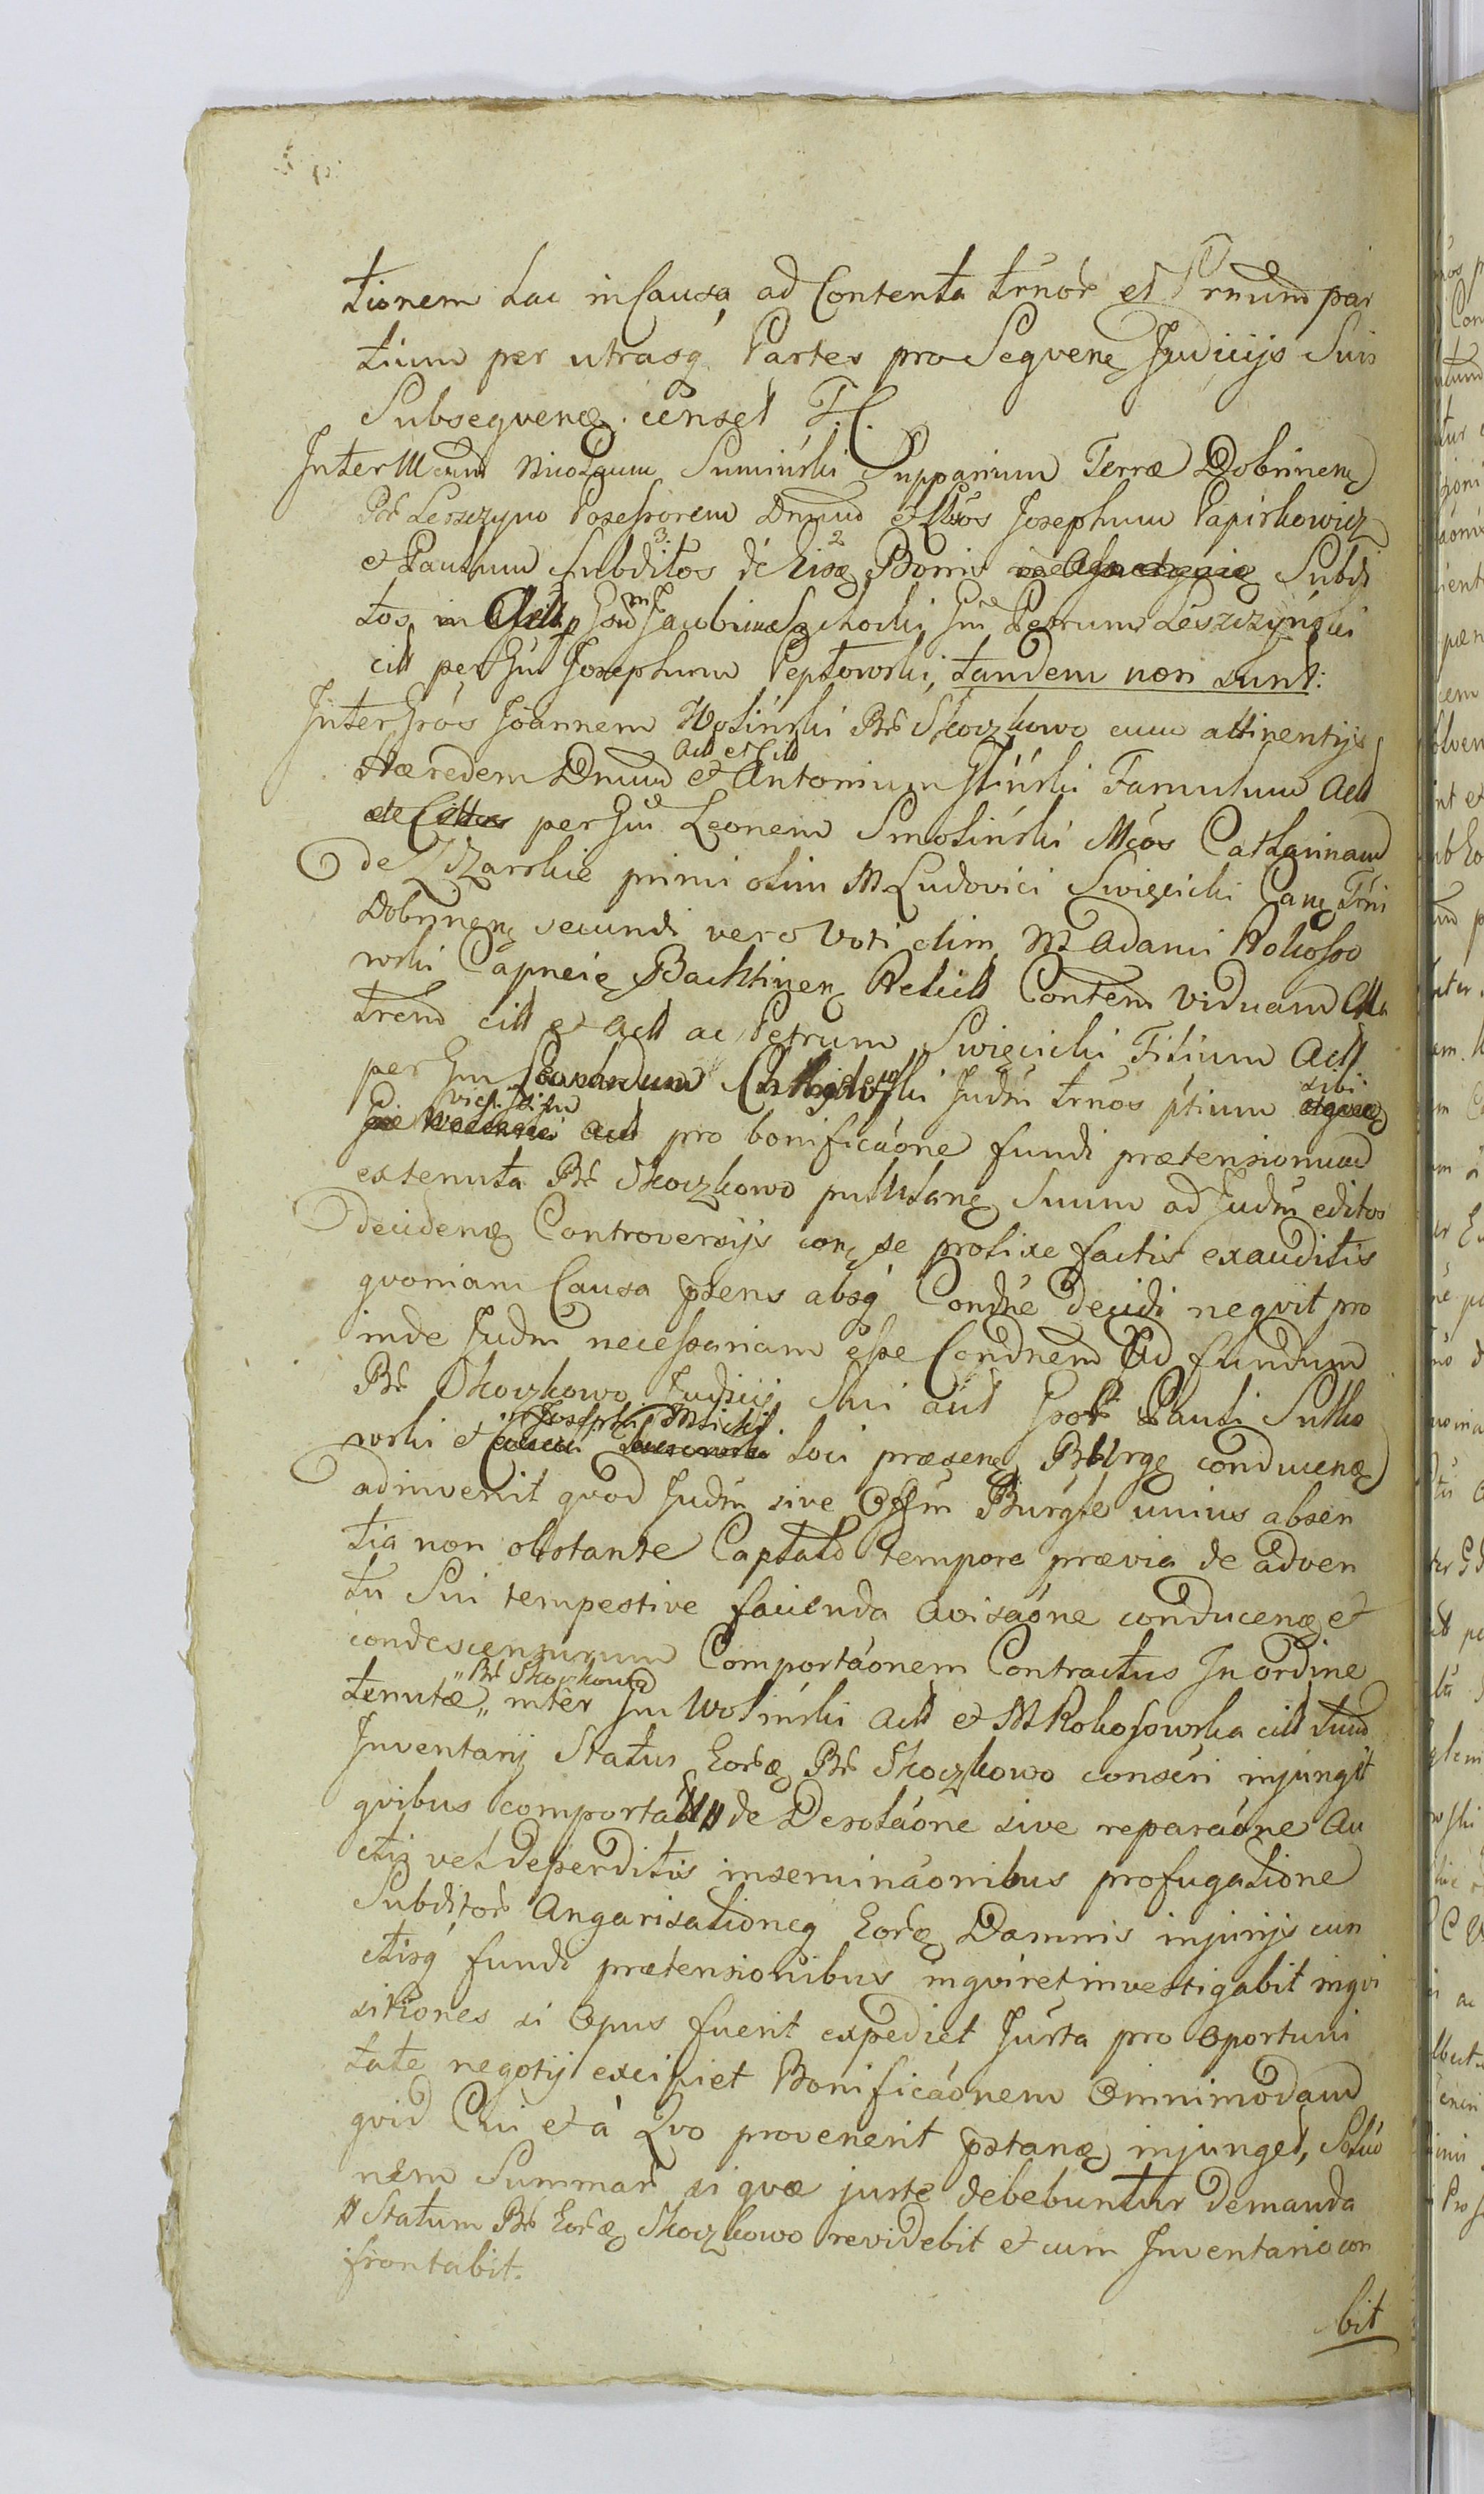 tionem hac in Causa, ad Contenta trnor et Trnum par
tium per utrasq Partes pro Seqvenȩ Judicijs Suis
Subseqvenȩ. censet T. C.
Inter Mcum Nicolaum Sumiński Supparium Terræ Dobrinenȩ
Br Leszczyno Possessorem Dnum et Lbos Josephum Papirkowicz
et Paulum subditos de hisȩ Bonis Subdi
tos Jacobum Suchocki Gm Petrum Leszczyński
citt per Gm Josephum Peptowski, tandem non sunt:
Inter Gros Joannem Woliński Br Skoczkowo cum attinentijs
Actt et Citt
Hæredem Dnum et Antonium Gliński Famulum Actt
per Gm Leonem Smoliński Mcos Catharinam
de Zdzarskie primi olim M Ludovici Swięcicki Canȩ Trni
Dobrinenȩ secundi vero Voti olim M Adami Rokosso
wski Capneiȩ Bachtinenȩ Relictt Contem Viduam Ma
trem citt et actt ac Petrum Swięcicki Filium Actt
per Gm Judm trnos ptium sibi
vicissim
actt pro bonificaone fundi prætensionum
ex tenuta Br Skoczkowo pullulanȩ Suum ad Judm editos
decidenȩ Controversijs corȩ se prolixe factis exauditis
qvoniam Causa præns absq Condne decidi neqvit pro
inde Judm necessariam esse Condnem Ad fundum
Br Skoczkowo Judicij Sui aut Gror Pauli Sutko
Josephi Msicki
wski et loci præsenȩ BbUrgȩ conducenȩ
adinvenit qvod Judm sive Offm Burgle unius absen
tia non obstante Captato tempore prævia de adven
tu Sui tempestive facienda avisaone conducenȩ et
condescensurum Comportaonem Contractus In ordine
" Br Skoczkowo
tenutæ " inter Gm Woliński actt et M Rokosowska citt tum
Inventarij Status Eorȩ Br Skoczkowo conseri injungit
qvibus comportatt // de Desolaone sive reparaone Au
ctis vel deperditis inseminaonibus profugatione
Subditor Angarisationeq Eorȩ Damnis injurijs cun
ctisq fundi prætensionibus inqviret investigabit inqvi
sitiones si Opus fuerit expediet Jurta pro oportuni
tate negotij excipiet Bonificaonem Omnimodam
qvid Cui et à Qvo provenerit pstanȩ injunget, Soluo
nem Summar si qvæ juste debebuntur demanda
// Statum Br Eorȩ Skoczkowo revidebit et cum Inventario con
frontabit.
bit